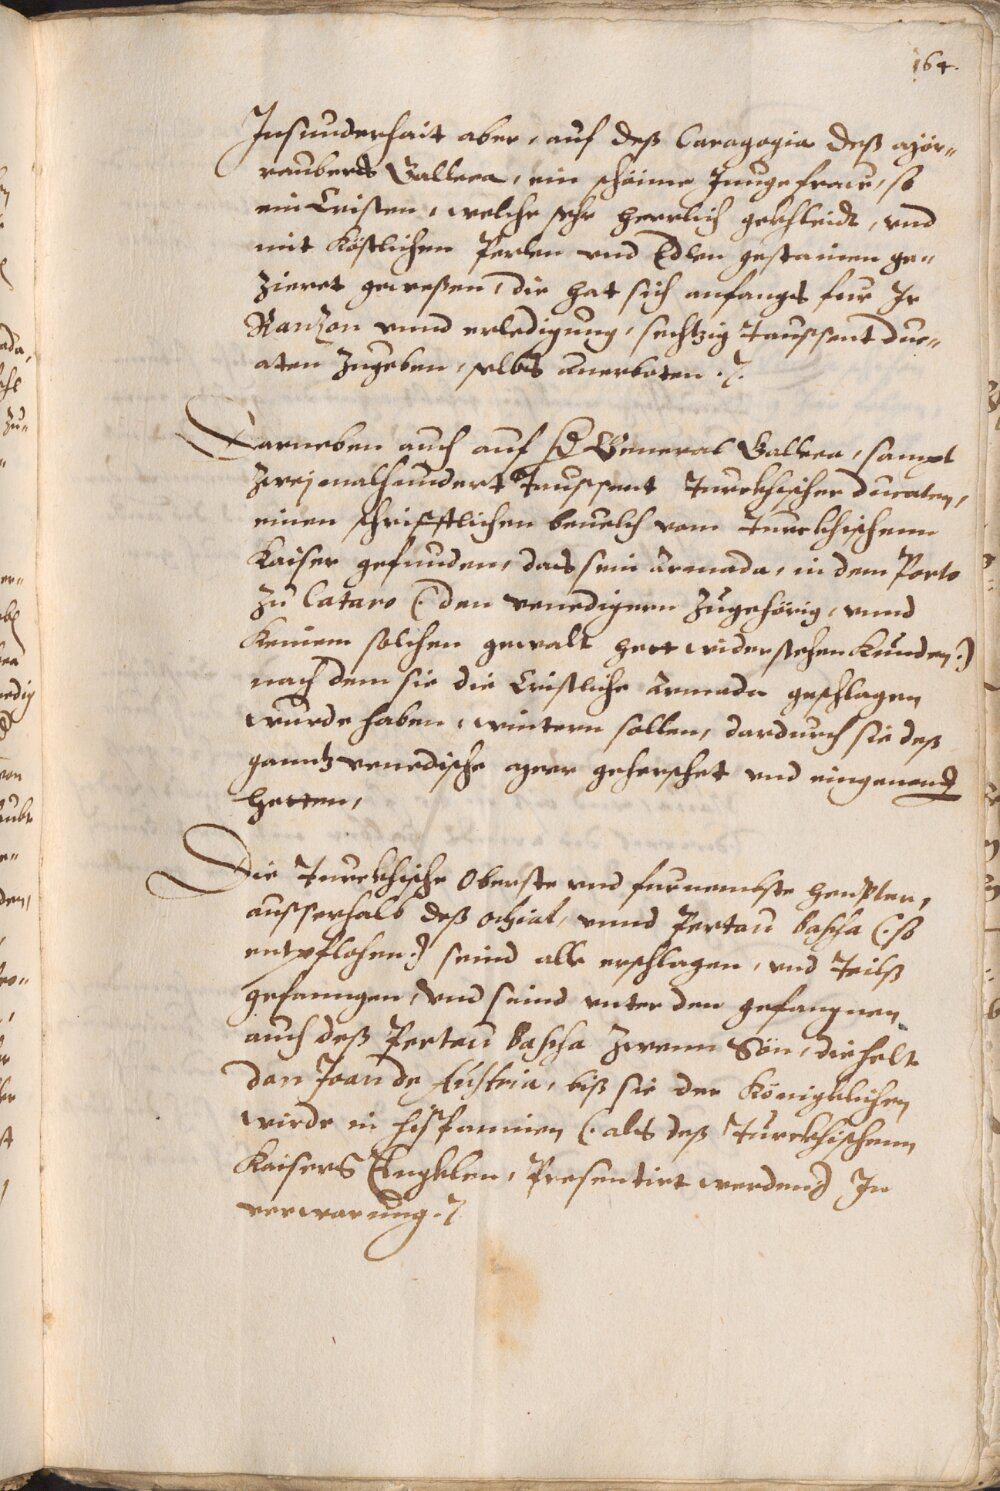 164.
Insunderhait aber, auf deß Caragogia deß Mör-
raubers Gallea, ein schöne Jungefraw, so
ein Cristen, welche sehr herrlich gekhleidt, vnd
mit köstlichen Perlen vnd Edlen gestainen ge-
zieret geweßen, die hat sich anfangs fur Ir
Ranzon vnnd erledigung, sechtzig Taussent duc-
aten zugeben, selbs anerboten ./.
Darneben auch auf General Gallea, sampt
zweymalhundert Taussent Turckhischer ducaten,
einen schrifftlichen beuelch vom Turckhischenn
Kaiser gefunden, das sein Armada, in dem Porto
zu Cataro (: den venedigern zugehörig, vnnd
keinem solchen gewalt hett widerstehen kunden :)
nach dem sie die Cristliche Armada geschlagen
wurde haben, wintern sollen, dardurch sie deß
ganntz venedische Meer geherschet vnd eingenomen
hetten,
Die Turckhische Oberste vnd furnembste heupter,
ausserhalb deß Ochial, vnnd Pertau Bascha (: so
entpflohen :) seind alle erschlagen, vnd Teilß
gefanngen, vnd seind vnter den gefangnen
auch deß Pertau Bascha zwenn Sön, die helt
Don Joan de Austria, biß sie der Königklichen
wirde in Hispannien (: als deß Türckhischenn
Kaisers Engklen, Presentirt werden :) In
verwarung ./.